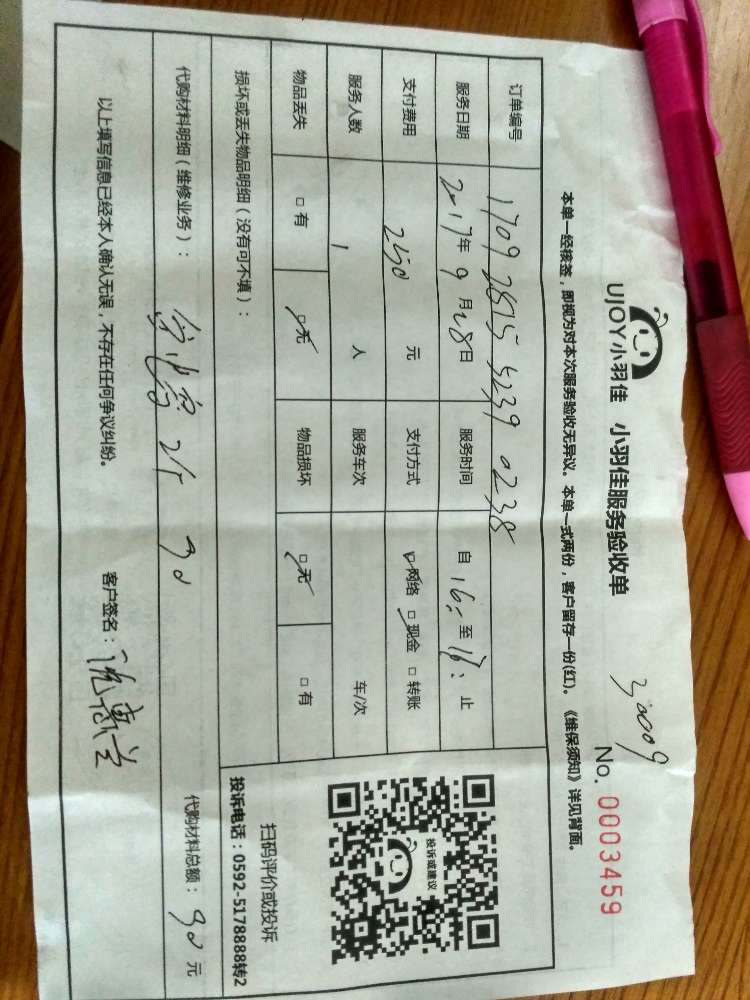 UJOY小羽佳 小羽佳服务验收单
30009
No. 0003459
本单一经核签，即视为对本次服务验收无异议。本单一式两份，客户留存一份(红)。《维保须知》详见背面。
订单编号 1709 2815 5239 0238
服务日期 2017年 9月28日 服务时间 自 16: 至 17: 止
支付费用 250 元 支付方式 网络 现金 转账
服务人数 1 人 服务车次 车/次
物品丢失 有 无 物品损坏 无 有
损坏或丢失物品明细（没有可不填）：
代购材料明细（维修业务）： 90
代购材料总额：90元
以上填写信息已经本人确认无误，不存在任何争议纠纷。 客户签名：
投诉或建议
扫码评价或投诉
投诉电话：0592-5178888转2